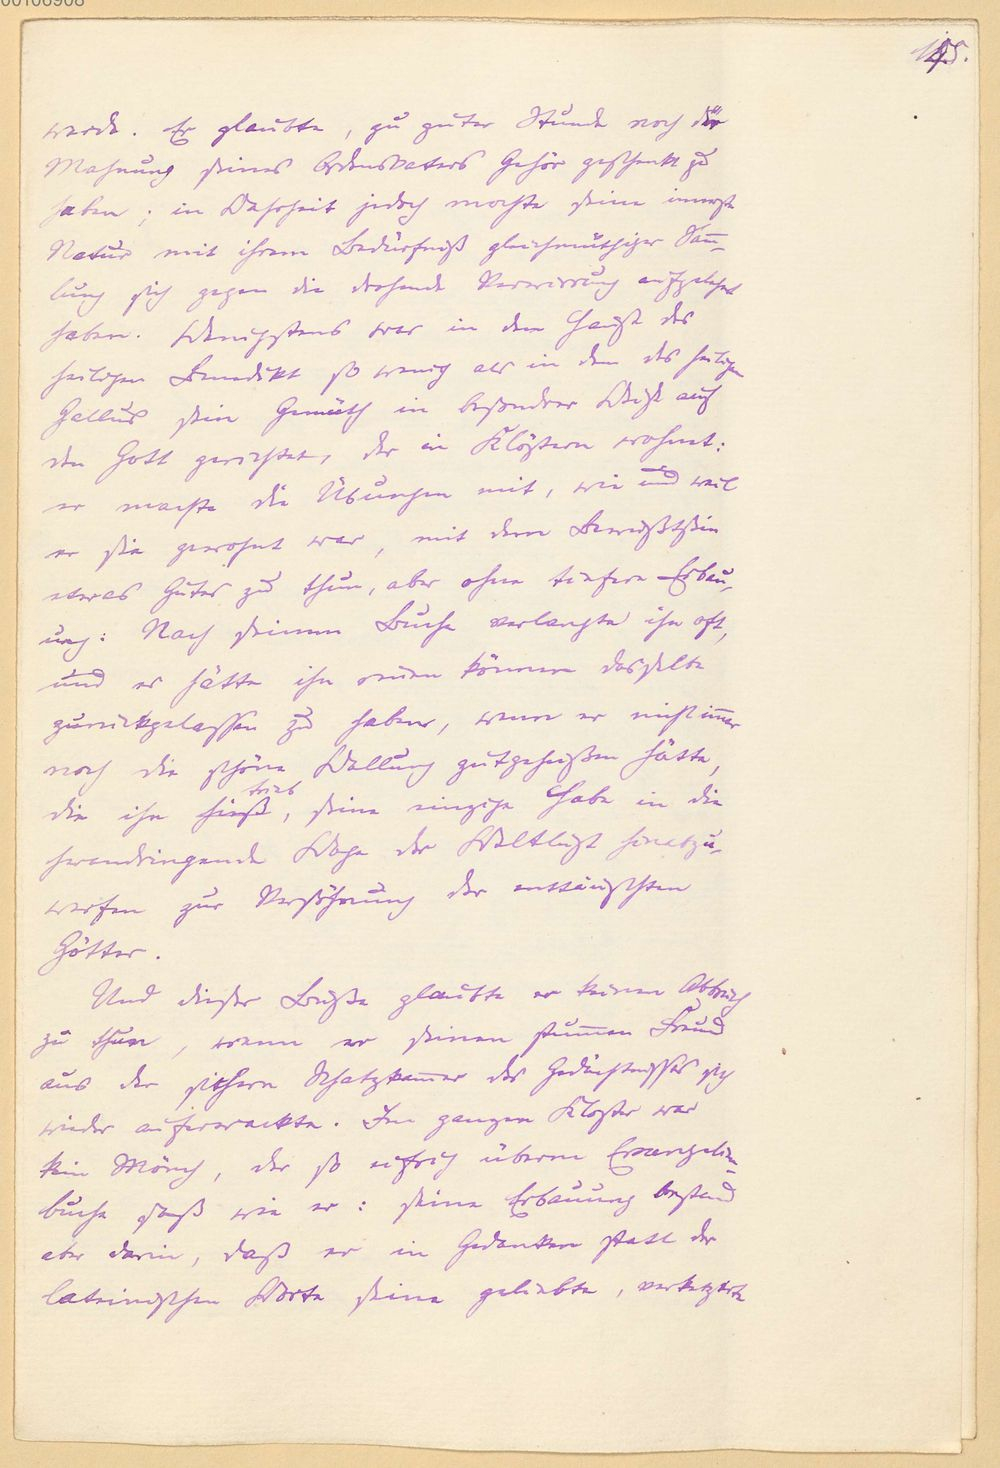 00106908
werde. Er glaubte, zu guter Stunde noch der
Mahnung seines Ordensvaters Gehör geschenkt zu
haben; in Wahrheit jedoch mochte seine innerste
Natur mit ihrem Bedürfniß gleichmüthiger Sam̅-
lung sich gegen die drohende Verwirrung aufgelehnt
haben. Wenigstens war in dem Hause des
heiligen Benedikt so wenig als in dem des heiligen
Gallus sein Gemüth in besondrer Weise auf
den Gott gerichtet, der in Klöstern wohnet:
er machte die Übungen mit, wie und weil
er sie gewohnt war, mit dem Bewußtsein
etwas Gutes zu thun, aber ohne tiefere Erbau-
ung: Nach seinem Buche verlangte ihn oft,
und es hätte ihn reuen können dasselbe
zurückgelassen zu haben, wenn er nicht im̅er
noch die schöne Wallung gutgeheißen hätte,
trieb
die ihn hieß, seine einzige Habe in die
herandringende Woge der Weltlust hinabzu-
werfen zur Versöhnung der enttäuschten
Götter.
Und dieser Buße glaubte er keinen Abbruch
zu thun, wenn er seinen stum̅en Freund
aus der sichern Schatzkam̅er des Gedächtnisses sich
wieder auferweckte. Im ganzen Kloster war
kein Mönch, der so eifrig überm Evangelien-
buche saß wie er: seine Erbauung bestand
aber darin, daß er in Gedanken statt der
lateinischen Worte seine geliebte, verketzerte